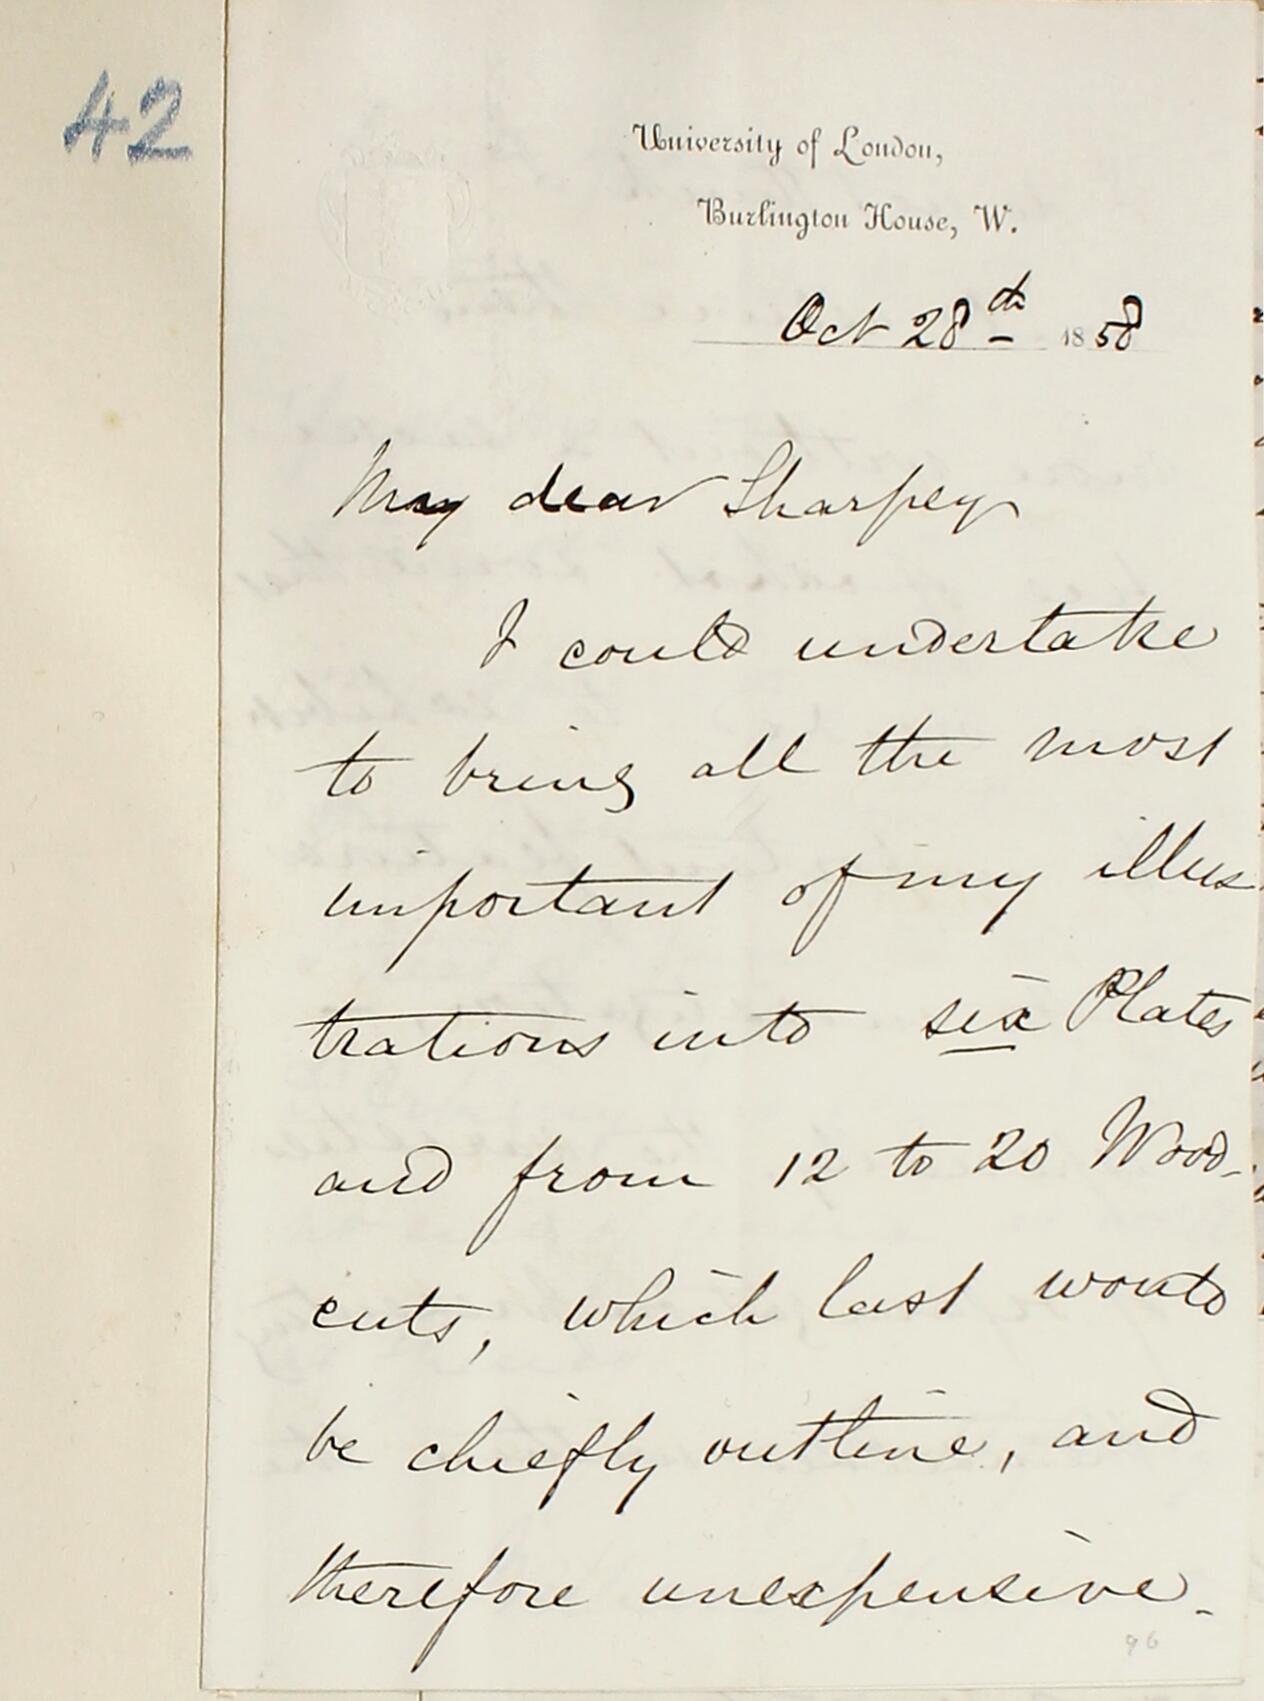 42
University of London,
Burlington House, W.
Oct 28th 1858
My dear Sharpey
I could undertake
to bring all the most
important of my illus
trations into six Plates
and from 12 to 20 Wood-
cuts, which last would
be chiefly outline, and
therefore unexpensive.
96